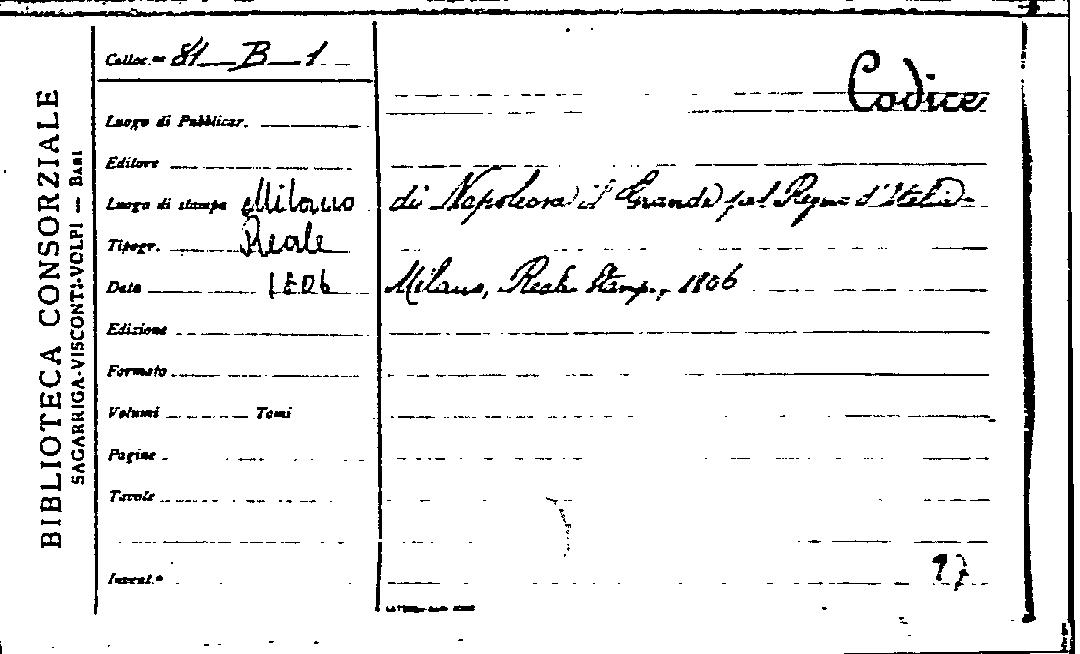 BIBLIOTECA CONSORZIALE
SAGARRIGA-VISCONTI-VOLPI — BARI
Colloc.ne 81 B 1
Luogo di Pubblicaz.
Editore
Luogo di stampa Milano
Tipogr. Reale
Data 1806
Edizione
Formato
Volumi Tomi
Pagine
Tavole
Invent.o
Codice
di Napoleone il Grande pel Regno d'Italia
Milano, Reale Stamp., 1806
97